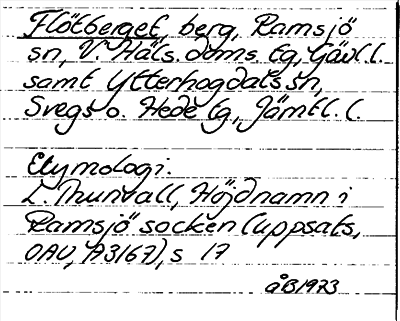 Flötberget, berg, Ramsjö
sn, V. Häls. doms. tg, Gävl. l.
samt Ytterhogdals sn,
Svegs o. Hede tg, Jämtl. l.
Etymologi.
L. Thunvall, Höjdnamn i
Ramsjö socken (uppsats,
OAU, A3167), s 17
åB 1973